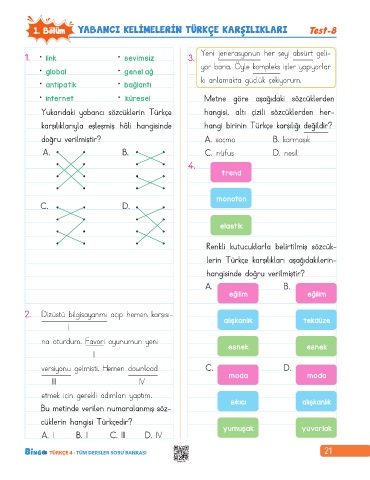 1. Bölüm YABANCI KELİMELERİN TÜRKÇE KARŞILIKLARI Test-8
1. • link • sevimsiz
• global • genel ağ
• antipatik • bağlantı
• internet • küresel
Yukarıdaki yabancı sözcüklerin Türkçe
karşılıklarıyla eşleşmiş hâli hangisinde
doğru verilmiştir?
A. B.
C. D.
2. Dizüstü bilgisayarımı açıp hemen karşısı-
I
na oturdum. Favori oyunumun yeni
II
versiyonu gelmişti. Hemen download
III IV
etmek için gerekli adımları yaptım.
Bu metinde verilen numaralanmış söz-
cüklerin hangisi Türkçedir?
A. I B. II C. III D. IV
3. Yeni jenerasyonun her şeyi absürt geli-
yor bana. Öyle kompleks işler yapıyorlar
ki anlamakta güçlük çekiyorum.
Metne göre aşağıdaki sözcüklerden
hangisi, altı çizili sözcüklerden her-
hangi birinin Türkçe karşılığı değildir?
A. saçma B. karmaşık
C. nüfus D. nesil
4.
trend
monoton
elastik
Renkli kutucuklarla belirtilmiş sözcük-
lerin Türkçe karşılıkları aşağıdakilerin-
hangisinde doğru verilmiştir?
A. B.
eğilim eğilim
alışkanlık tekdüze
esnek esnek
C. D.
moda moda
sıkıcı alışkanlık
yumuşak yuvarlak
BinGO TÜRKÇE 4 - TÜM DERSLER SORU BANKASI 21